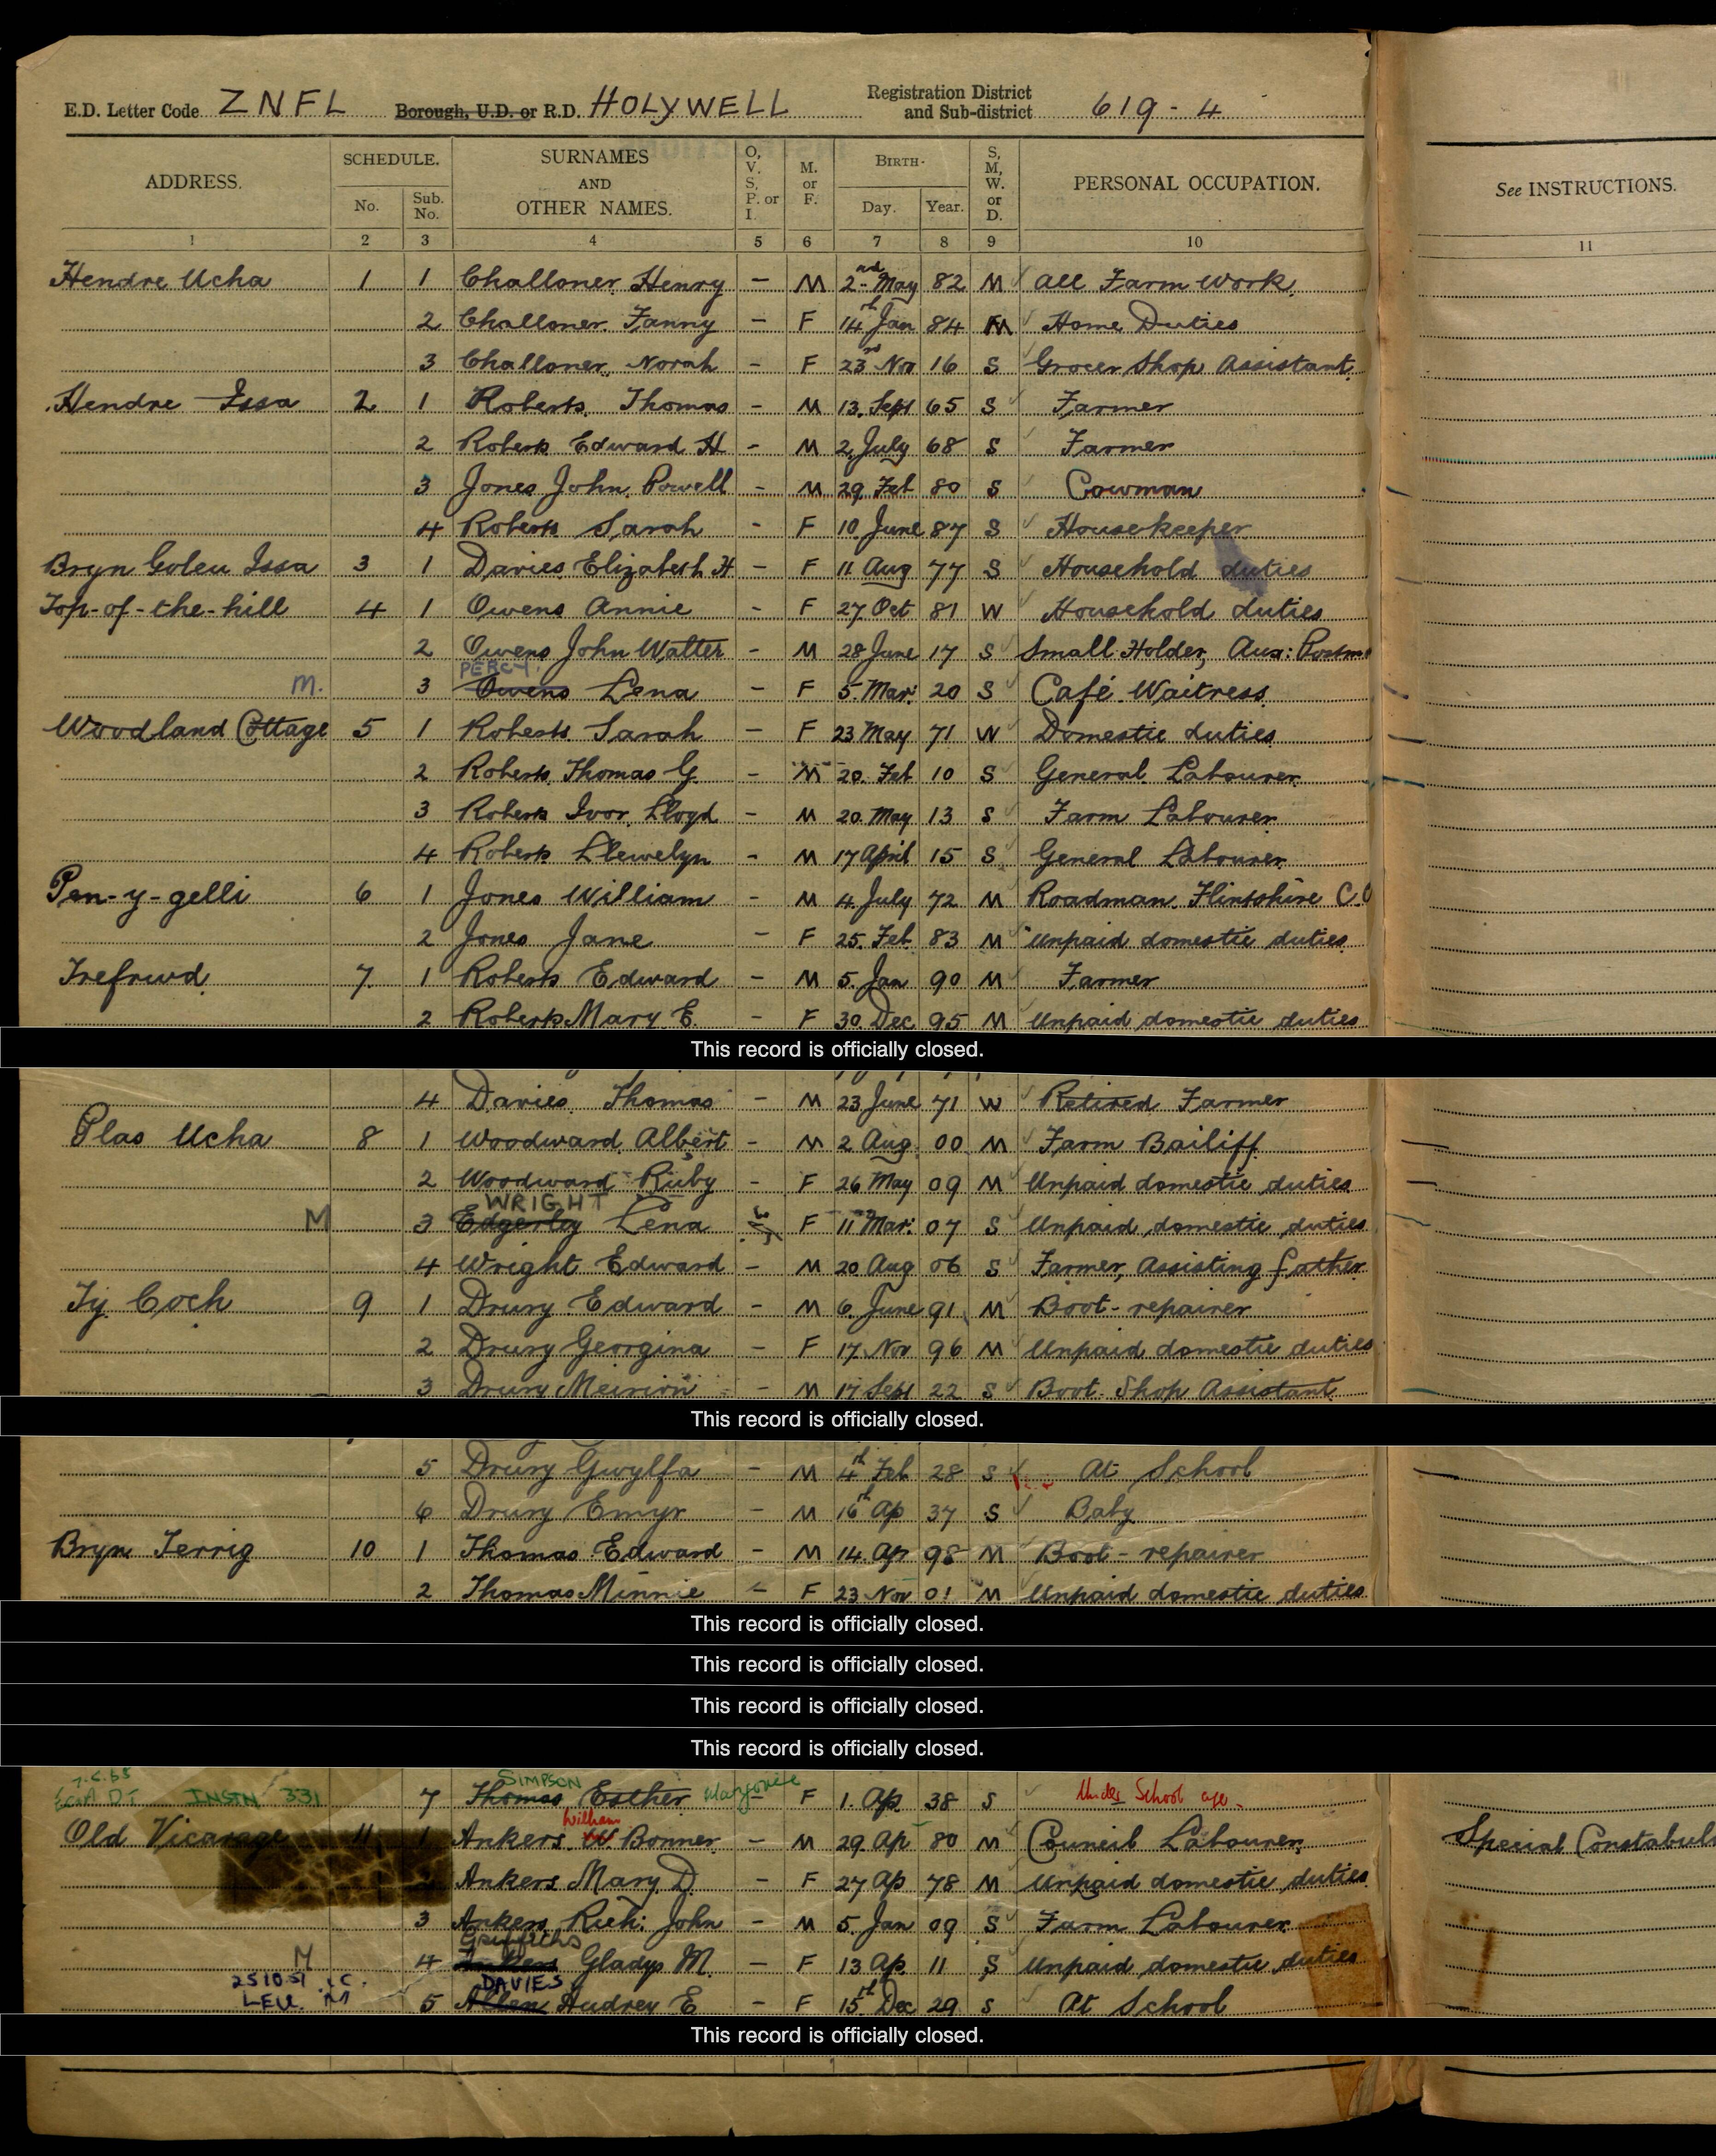 E.D. Letter Code ZNFL Borough, U.D. or R.D. HOLYWELL Registration District and Sub-district 619-4
ADDRESS. SCHEDULE. No. Sub. No. SURNAMES AND OTHER NAMES. O, V. S, P. or I. M. or F. BIRTH- Day. Year. S, M, W. or D. PERSONAL OCCUPATION. See INSTRUCTIONS.
1 2 3 4 5 6 7 8 9 10 11
Hendre Ucha 1 1 Challoner Henry - M 2nd May 82 M All Farm Work
2 Challoner Fanny - F 14th Jan 84 M Home Duties
3 Challoner Norah - F 23rd Nov 16 S Grocer Shop Assistant
Hendre Issa 2 1 Roberts Thomas - M 13. Sept 65 S Farmer
2 Roberts Edward H - M 2 July 68 S Farmer
3 Jones John Powell - M 29 Feb 80 S Cowman
4 Roberts Sarah - F 10 June 87 S Housekeeper
Bryn Goleu Issa 3 1 Davies Elizabeth H - F 11 Aug 77 S Household duties
Top-of-the-hill 4 1 Owens Annie - F 27 Oct 81 W Household duties
2 Owens John Walter - M 28 June 17 S Small Holder, Aux: Postm
PERCY
M. 3 Owens Lena - F 5. Mar: 20 S Café Waitress
Woodland Cottage 5 1 Roberts Sarah - F 23 May 71 W Domestic duties
2 Roberts Thomas G. - M 20. Feb 10 S General Labourer
3 Roberts Ivor Lloyd - M 20. May 13 S Farm Labourer
4 Roberts Llewelyn - M 17 April 15 S General Labourer
Pen-y-gelli 6 1 Jones William - M 4. July 72 M Roadman. Flintshire C.C
2 Jones Jane - F 25. Feb 83 M Unpaid domestic duties
Trefrwd 7. 1 Roberts Edward - M 5. Jan 90 M Farmer
2 Roberts Mary E. - F 30 Dec 95 M Unpaid domestic duties
This record is officially closed.
4 Davies Thomas - M 23 June 71 W Retired Farmer
Plas Ucha 8 1 Woodward Albert - M 2 Aug 00 M Farm Bailiff
2 Woodward Ruby - F 26 May 09 M Unpaid domestic duties
WRIGHT
M 3 Edgerley Lena F 11 Mar: 07 S Unpaid domestic duties
4 Wright Edward - M 20 Aug 06 S Farmer, Assisting father
Ty Coch 9 1 Drury Edward - M 6. June 91 M Boot-repairer
2 Drury Georgina - F 17. Nov 96 M Unpaid domestic duties
3 Drury Meirion - M 17 Sept 22 S Boot Shop Assistant
This record is officially closed.
5 Drury Gwylfa - M 4th Feb 28 S At School
6 Drury Emyr - M 16th Ap 37 S Baby
Bryn Ferrig 10 1 Thomas Edward - M 14. Apr 98 M Boot-repairer
2 Thomas Minnie - F 23 Nov 01 M Unpaid domestic duties
This record is officially closed.
This record is officially closed.
This record is officially closed.
This record is officially closed.
SIMPSON
INSTN 331 7 Thomas Esther Marjorie - F 1. Ap. 38 S Under School age.
William
Old Vicarage 11 1 Ankers W. Bonner - M 29. Ap 80 M Council Labourer Special Constabul
Ankers Mary D. - F 27 Ap 78 M Unpaid domestic duties
3 Ankers Rich: John - M 5. Jan 09 S Farm Labourer
Griffiths
M 4 Ankers Gladys M. - F 13 Ap. 11 S Unpaid domestic duties
251051
DAVIES
5 Allen Audrey E - F 15th Dec 29 S At School
This record is officially closed.